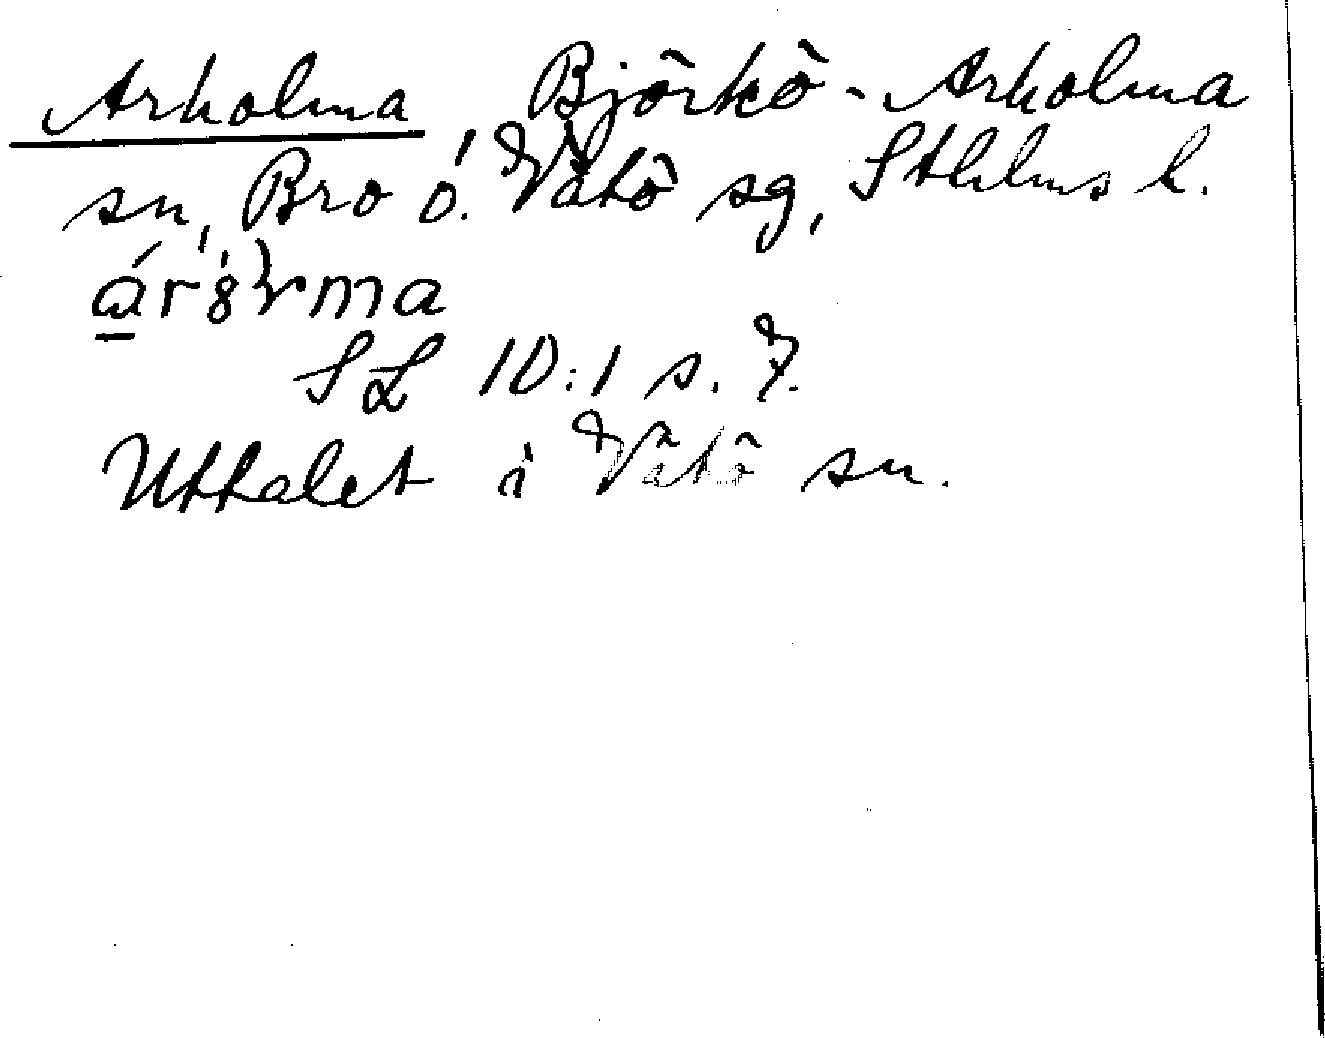 Arholma Björkö-Arholma
sn, Bro o. Vätö sg, Sthlms l.
SL 10:1 s. 7.
Uttalet i Vätö sn.